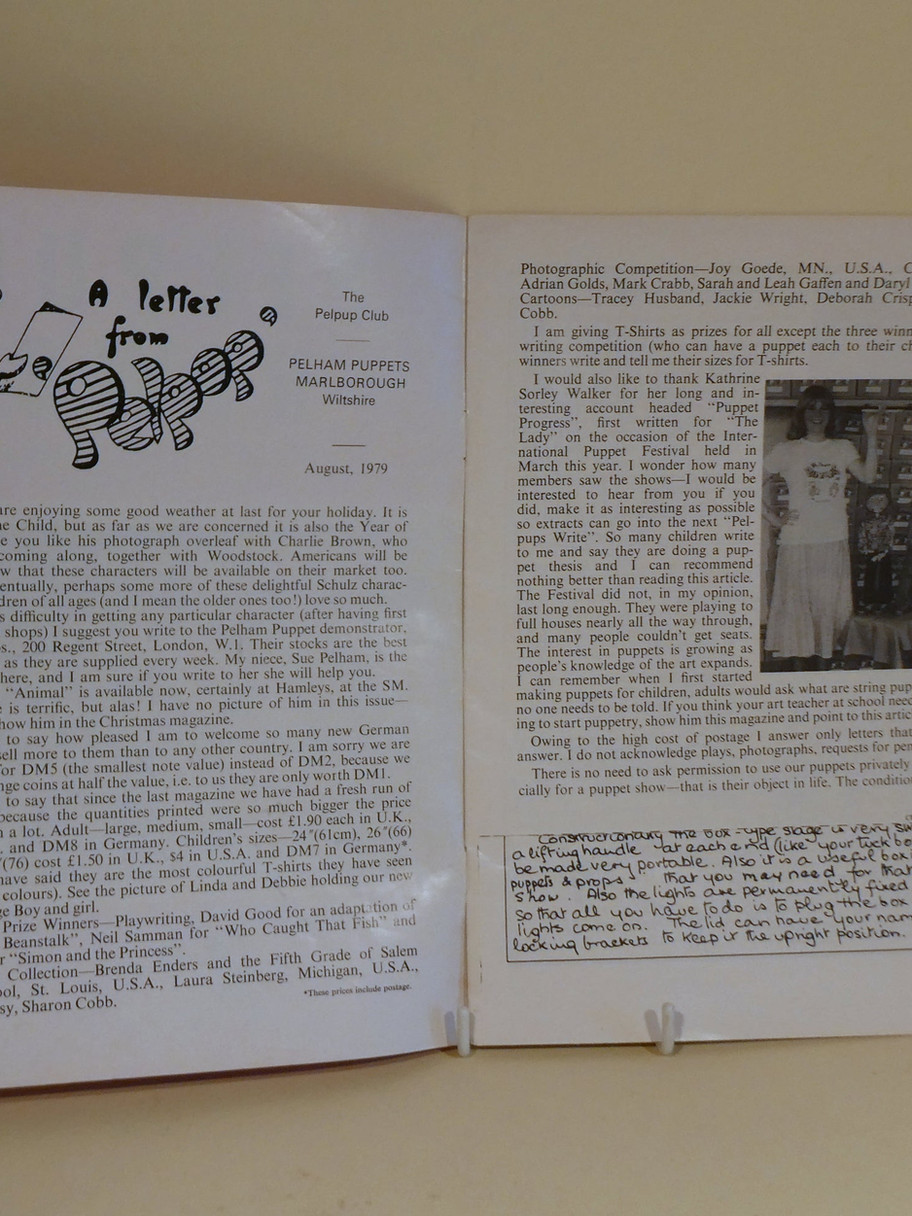 A letter
from
Pelpup
The
Pelpup Club
PELHAM PUPPETS
MARLBOROUGH
Wiltshire
August, 1979
are enjoying some good weather at last for your holiday. It is
e Child, but as far as we are concerned it is also the Year of
e you like his photograph overleaf with Charlie Brown, who
coming along, together with Woodstock. Americans will be
w that these characters will be available on their market too.
entually, perhaps some more of these delightful Schulz charac-
dren of all ages (and I mean the older ones too!) love so much.
s difficulty in getting any particular character (after having first
shops) I suggest you write to the Pelham Puppet demonstrator,
s., 200 Regent Street, London, W.1. Their stocks are the best
as they are supplied every week. My niece, Sue Pelham, is the
here, and I am sure if you write to her she will help you.
"Animal" is available now, certainly at Hamleys, at the SM.
e is terrific, but alas! I have no picture of him in this issue—
how him in the Christmas magazine.
to say how pleased I am to welcome so many new German
sell more to them than to any other country. I am sorry we are
or DM5 (the smallest note value) instead of DM2, because we
nge coins at half the value, i.e. to us they are only worth DM1.
to say that since the last magazine we have had a fresh run of
because the quantities printed were so much bigger the price
n a lot. Adult—large, medium, small—cost £1.90 each in U.K.,
. and DM8 in Germany. Children's sizes—24"(61cm), 26"(66)
"(76) cost £1.50 in U.K., $4 in U.S.A. and DM7 in Germany*.
have said they are the most colourful T-shirts they have seen
colours). See the picture of Linda and Debbie holding our new
ge Boy and girl.
Prize Winners—Playwriting, David Good for an adaptation of
Beanstalk", Neil Samman for "Who Caught That Fish" and
r "Simon and the Princess".
Collection—Brenda Enders and the Fifth Grade of Salem
ool, St. Louis, U.S.A., Laura Steinberg, Michigan, U.S.A.,
sy, Sharon Cobb.
*These prices include postage.
Photographic Competition—Joy Goede, MN., U.S.A., C
Adrian Golds, Mark Crabb, Sarah and Leah Gaffen and Daryl
Cartoons—Tracey Husband, Jackie Wright, Deborah Crisp
Cobb.
I am giving T-Shirts as prizes for all except the three winn
writing competition (who can have a puppet each to their ch
winners write and tell me their sizes for T-shirts.
I would also like to thank Kathrine
Sorley Walker for her long and in-
teresting account headed "Puppet
Progress", first written for "The
Lady" on the occasion of the Inter-
national Puppet Festival held in
March this year. I wonder how many
members saw the shows—I would be
interested to hear from you if you
did, make it as interesting as possible
so extracts can go into the next "Pel-
pups Write". So many children write
to me and say they are doing a pup-
pet thesis and I can recommend
nothing better than reading this article.
The Festival did not, in my opinion,
last long enough. They were playing to
full houses nearly all the way through,
and many people couldn't get seats.
The interest in puppets is growing as
people's knowledge of the art expands.
I can remember when I first started
making puppets for children, adults would ask what are string pup
no one needs to be told. If you think your art teacher at school need
ing to start puppetry, show him this magazine and point to this artic
Owing to the high cost of postage I answer only letters that
answer. I do not acknowledge plays, photographs, requests for pen
There is no need to ask permission to use our puppets privately
cially for a puppet show—that is their object in life. The condition
Constructionally the box-type stage is very sim
a lifting handle at each end (like your tuck bo
be made very portable. Also it is a useful box
puppets & props that you may need for that
show. Also the lights are permanently fixed
so that all you have to do is to plug the box
lights come on. The lid can have your nam
locking brackets to keep it the upright position.